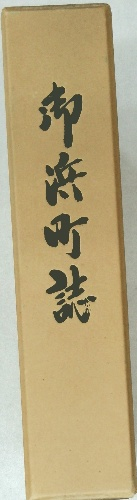 御浜町誌